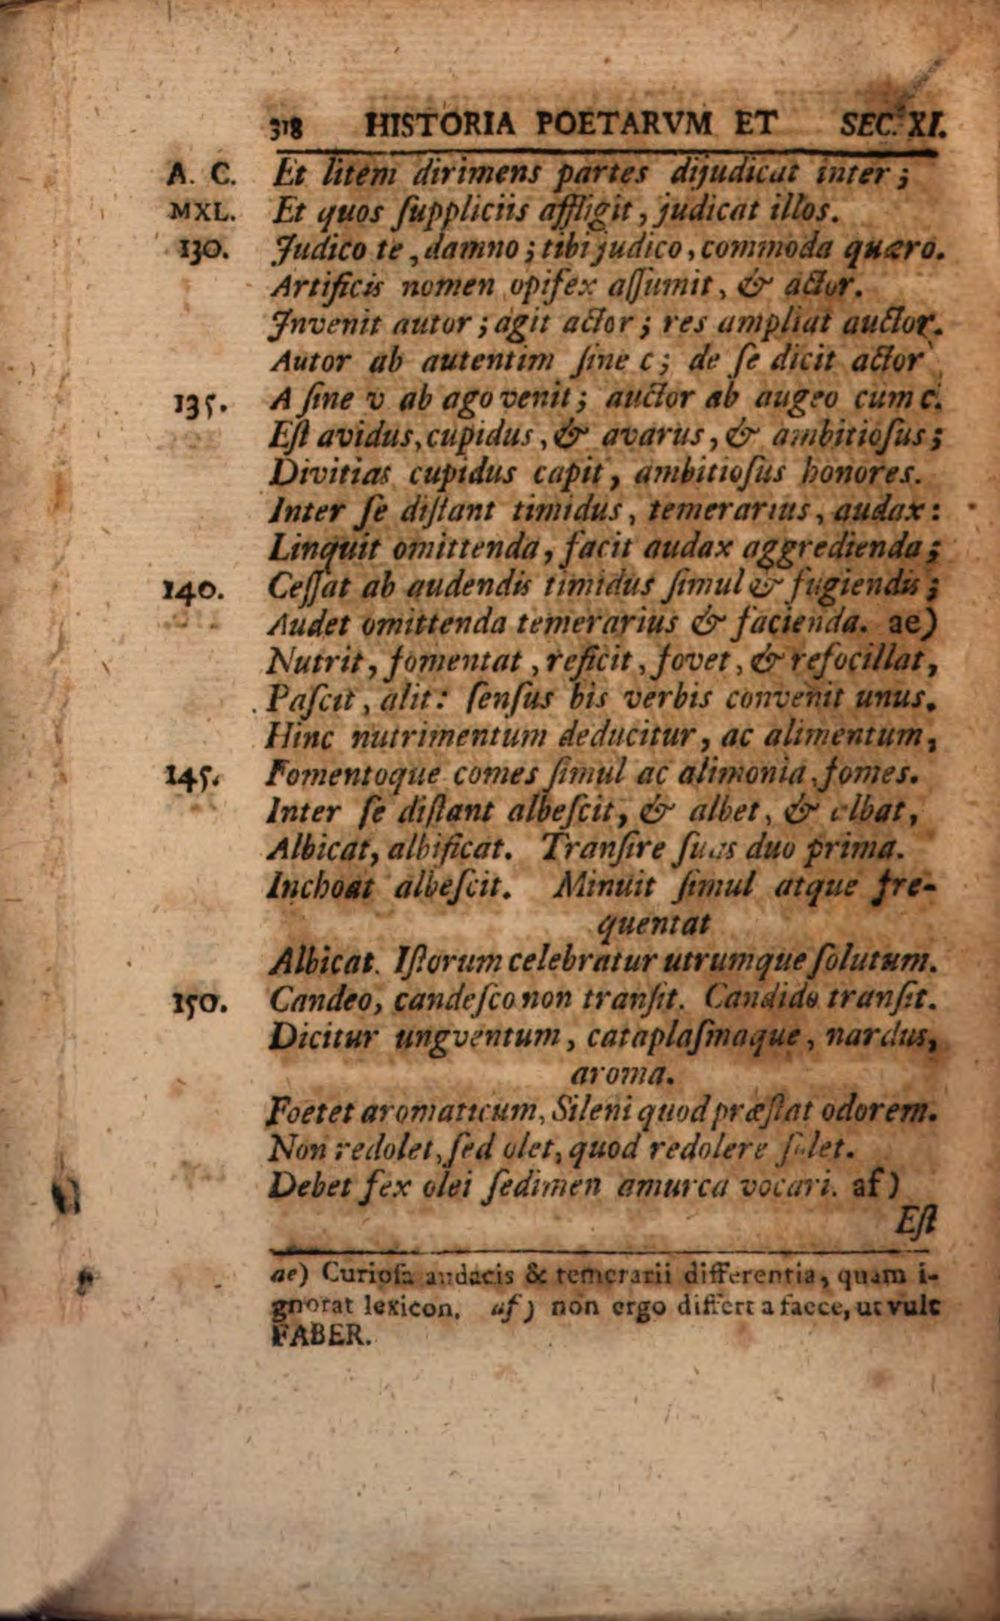 318 HISTORIA POETARVM ET SEC. XI.
A. C. Et litem dirimens partes dijudicat inter;
MXL. Et quos ſuppliciis affligit, judicat illos.
130. Judico te, damno; tibi judico, commoda quæro.
Artificis nomen opifex aſſumit, & actor.
Invenit autor; agit actor; res ampliat auctor.
Autor ab autentim ſine c; de ſe dicit actor
135. A ſine v ab ago venit; auctor ab augeo cum c.
Eſt avidus, cupidus, & avarus, & ambitioſus;
Divitias cupidus capit, ambitioſus honores.
Inter ſe diſtant timidus, temerarius, audax:
Linquit omittenda, facit audax aggredienda;
140. Ceſſat ab audendis timidus ſimul & fugiendis;
Audet omittenda temerarius & facienda. ae)
Nutrit, fomentat, reficit, fovet, & refocillat,
Paſcit, alit: ſenſus his verbis convenit unus.
Hinc nutrimentum deducitur, ac alimentum,
145. Fomentoque comes ſimul ac alimonia, fomes.
Inter ſe diſtant albeſcit, & albet, & albat,
Albicat, albificat. Tranſire ſuas duo prima.
Inchoat albeſcit. Minuit ſimul atque fre-
quentat
Albicat. Iſtorum celebratur utrumque ſolutum.
150. Candeo, candeſco non tranſit. Candido tranſit.
Dicitur ungventum, cataplaſmaque, nardus,
aroma.
Foetet aromaticum, Sileni quod præſtat odorem.
Non redolet, ſed olet, quod redolere ſolet.
Debet fex olei ſedimen amurca vocari. af)
Eſt
ae) Curioſa audacis & temerarii differentia, quam i-
gnorat lexicon. af) non ergo differt a faece, ut vult
FABER.